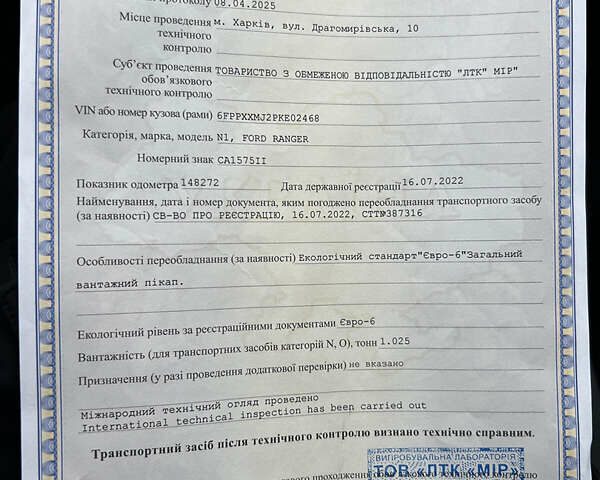 протоколу 08.04.2025
Місце проведення м. Харків, вул. Драгомирівська, 10
технічного
контролю
Суб'єкт проведення ТОВАРИСТВО З ОБМЕЖЕНОЮ ВІДПОВІДАЛЬНІСТЮ "ЛТК" МІР"
обов'язкового
технічного контролю
VIN або номер кузова (рами) 6FPPXXMJ2PKE02468
Категорія, марка, модель N1, FORD RANGER
Номерний знак СА1575ІІ
Показник одометра 148272 Дата державної реєстрації 16.07.2022
Найменування, дата і номер документа, яким погоджено переобладнання транспортного засобу
(за наявності) СВ-ВО ПРО РЕЄСТРАЦІЮ, 16.07.2022, СТТ№387316
Особливості переобладнання (за наявності) Екологічний стандарт"Євро-6"Загальний
вантажний пікап.
Екологічний рівень за реєстраційними документами Євро-6
Вантажність (для транспортних засобів категорій N, O), тонн 1.025
Призначення (у разі проведення додаткової перевірки) не вказано
Міжнародний технічний огляд проведено
International technical inspection has been carried out
Транспортний засіб після технічного контролю визнано технічно справним.
ВИПРОБУВАЛЬНА ЛАБОРАТОРІЯ
ТОВ «ЛТК «МІР»
проходження технічного контролю